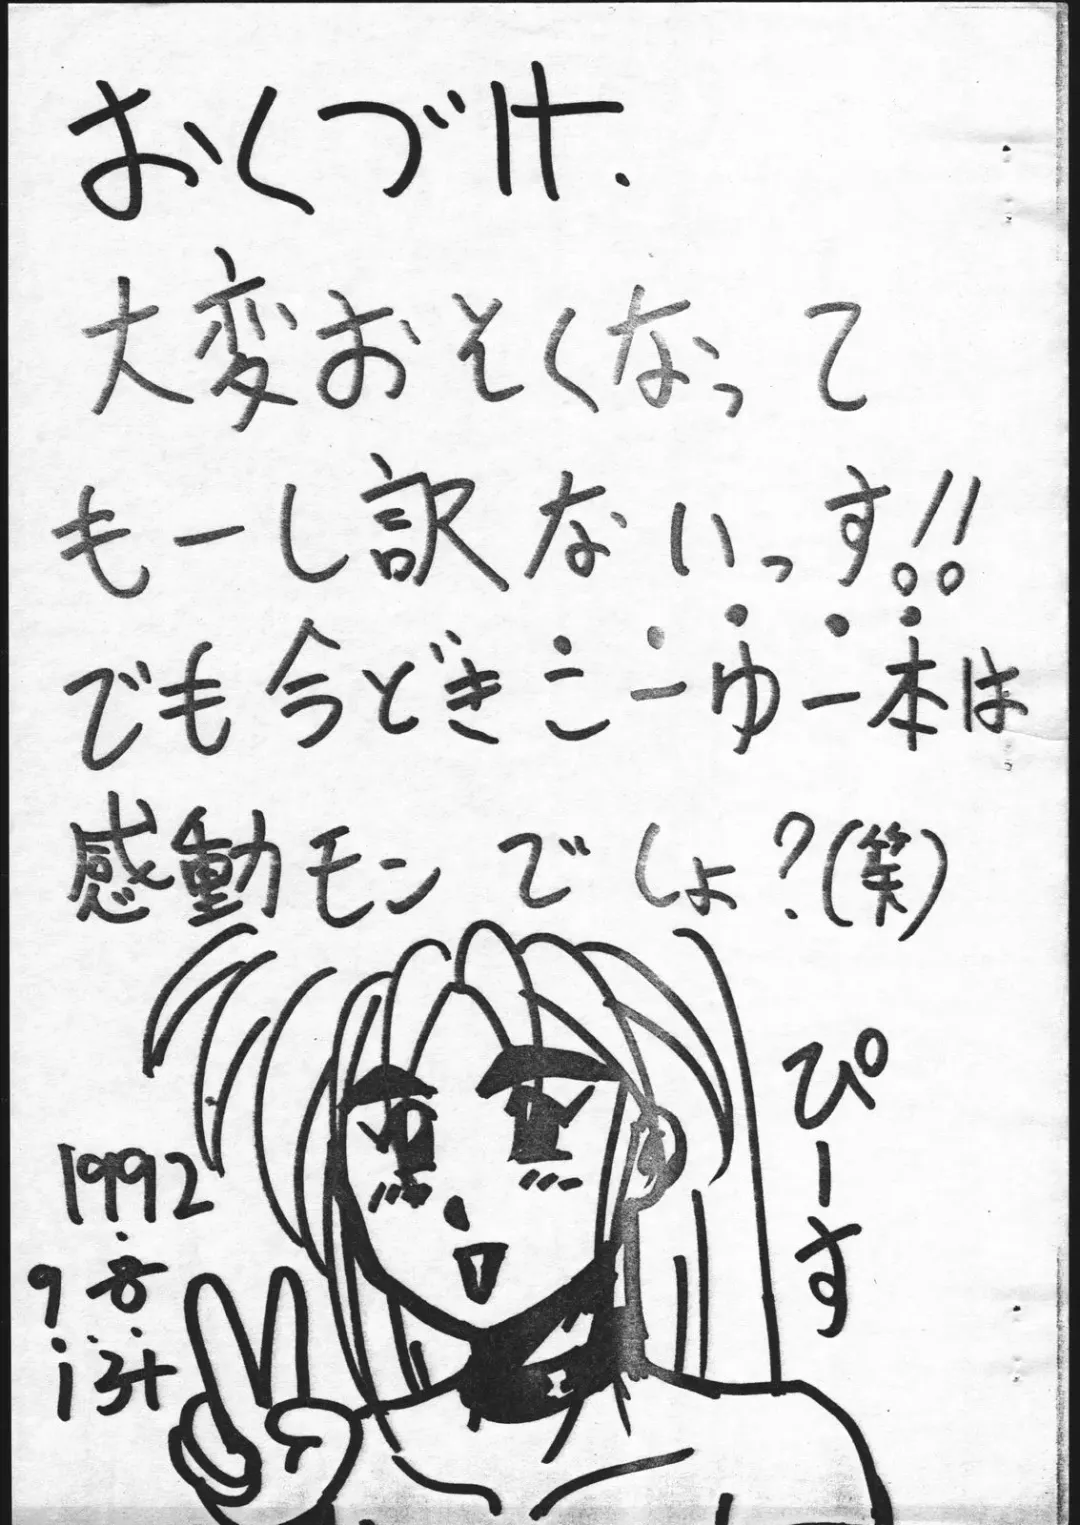 おくづけ.
大変おそくなって
もーし訳ないっす!!
でも今どきこーゆー本は
感動モンでしょ?(笑)
ぴーす
1992